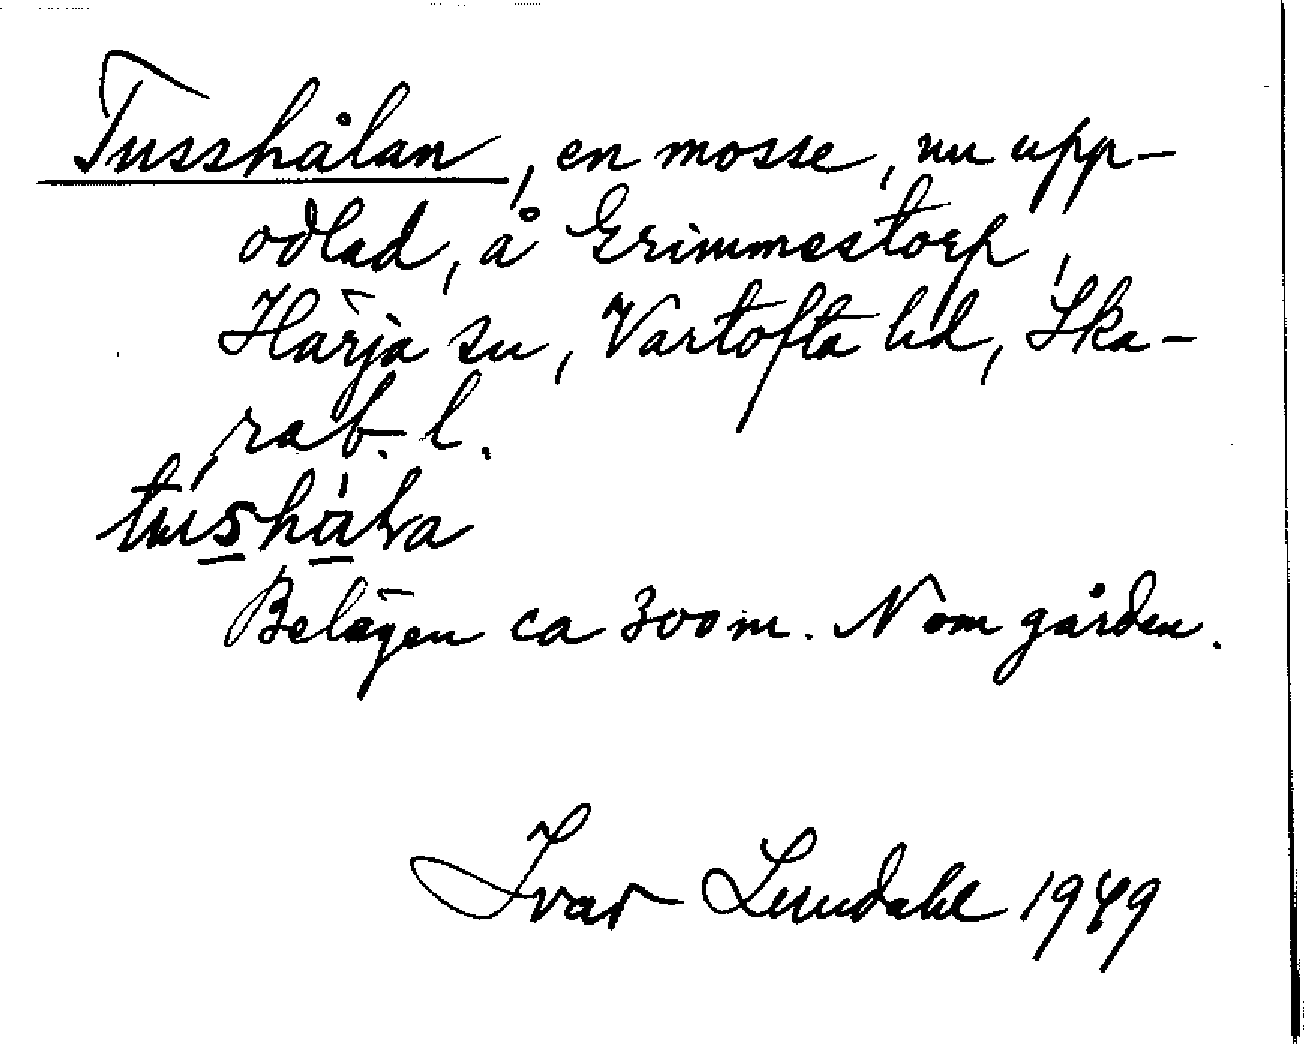 Tusshålan, en mosse, nu upp-
odlad, å Grimmestorp,
Härja sn, Vartofta hd, Ska-
rab. l.
Belägen ca 300 m. N om gården.
Ivar Lundahl 1949